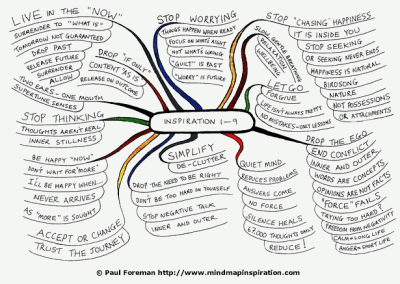 LIVE IN THE "NOW"
SURRENDER TO "WHAT IS"
TOMORROW NOT GUARANTEED
DROP PAST
RELEASE FUTURE
SURRENDER
ALLOW
DROP "IF ONLY"
CONTENT "AS IS"
RELEASE ON OUTCOME
TWO EARS - ONE MOUTH
SUPERTUNE SENSES
STOP THINKING
THOUGHTS AREN'T REAL
INNER STILLNESS
BE HAPPY "NOW"
DON'T WAIT FOR "MORE"
I'LL BE HAPPY WHEN...
NEVER ARRIVES
AS "MORE" IS SOUGHT
ACCEPT OR CHANGE
TRUST THE JOURNEY
STOP WORRYING
THINGS HAPPEN WHEN READY
FOCUS ON WHAT'S RIGHT
NOT WHAT'S WRONG
"GUILT" IS PAST
"WORRY" IS FUTURE
INSPIRATION 1-9
SIMPLIFY
DE-CLUTTER
DROP THE NEED TO BE RIGHT
DON'T BE TOO HARD ON YOURSELF
STOP NEGATIVE TALK
INNER AND OUTER
STOP "CHASING" HAPPINESS
IT IS INSIDE YOU
STOP SEEKING
OR SEEKING NEVER ENDS
HAPPINESS IS NATURAL
BIRDSONG
NATURE
NOT POSSESSIONS
OR ATTACHMENTS
SLOW, GENTLE BREATHING
RELAXATION
WELLBEING
LET GO
FORGIVE
LIFE ISN'T ALWAYS PRETTY
NO MISTAKES - ONLY LESSONS
DROP THE EGO
END CONFLICT
INNER AND OUTER
WORDS ARE CONCEPTS
OPINIONS ARE NOT FACTS
"FORCE" FAILS
TRYING TOO HARD?
FREEDOM FROM NEGATIVITY
CALM = LONG LIFE
ANGER = SHORT LIFE
QUIET MIND
REDUCES PROBLEMS
ANSWERS COME
NO FORCE
SILENCE HEALS
67,000 THOUGHTS DAILY
REDUCE!
© Paul Foreman http://www.mindmapinspiration.com